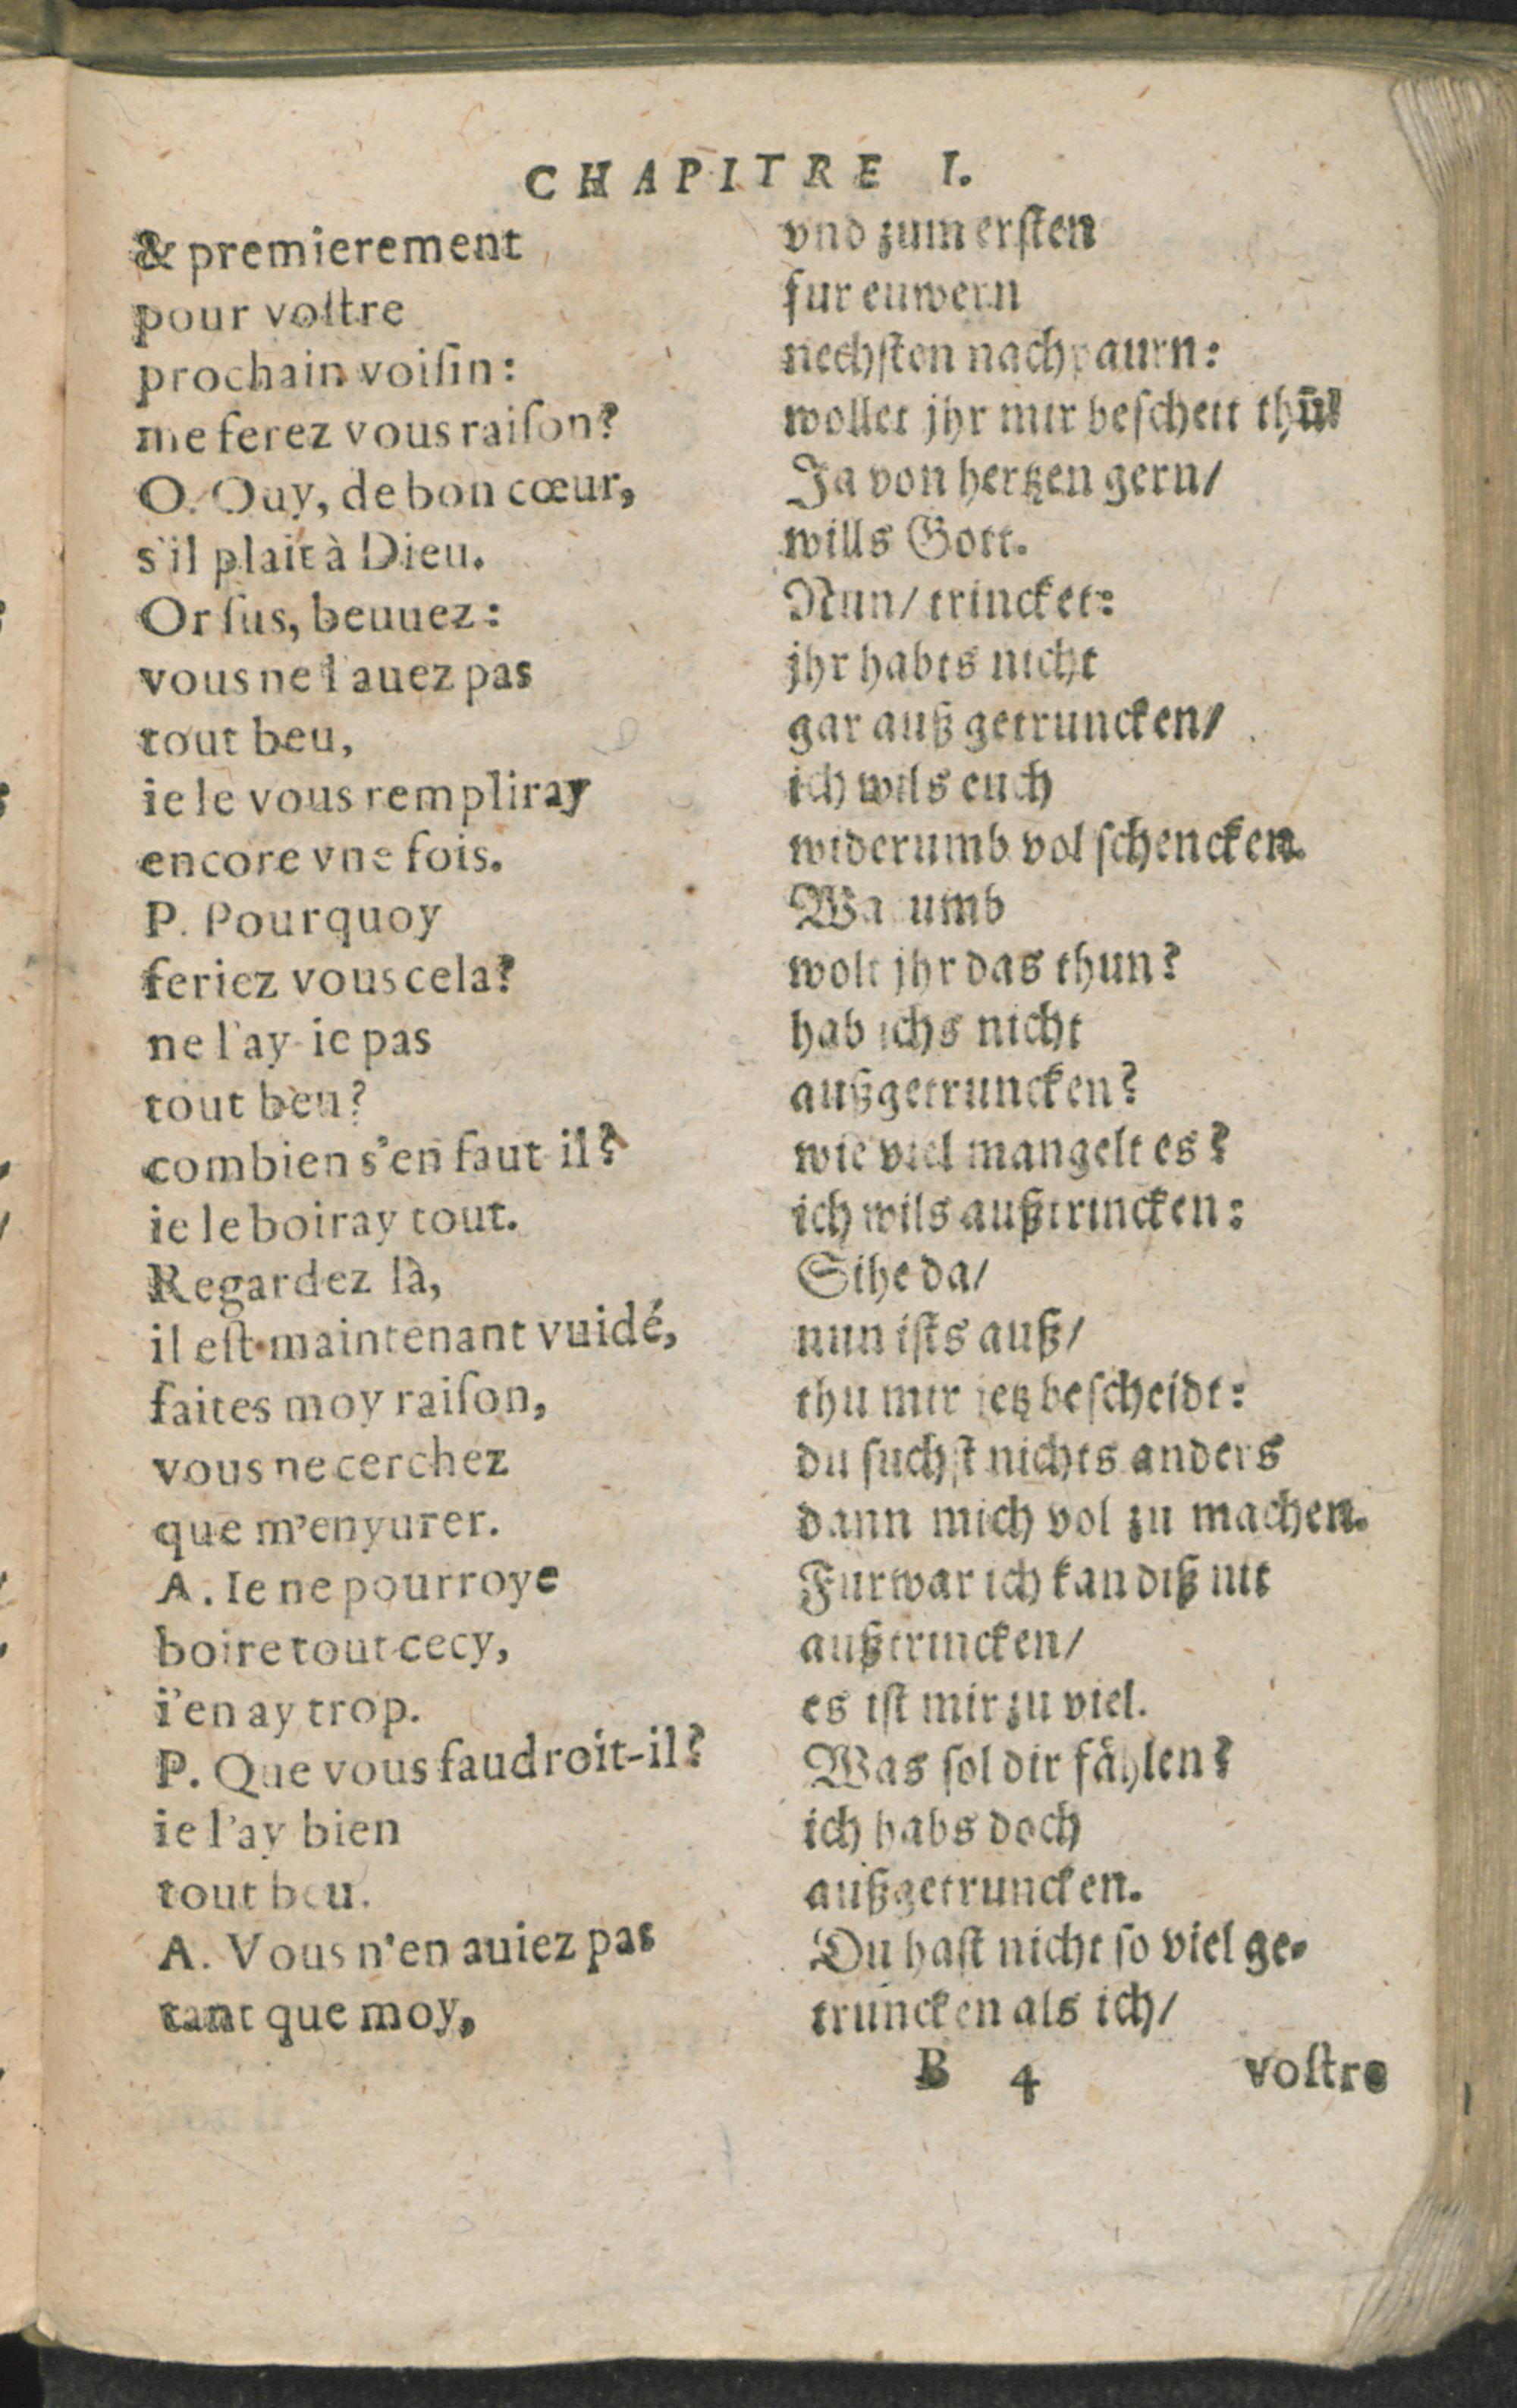 CHAPITRE I.
& premierement
pour voſtre
prochain voiſin:
me ferez vous raiſon?
O. Ouy, de bon cœur,
s'il plait à Dieu.
Or ſus, beuuez:
vous ne l'auez pas
tout beu,
ie le vous rempliray
encore vne fois.
P. Pourquoy
feriez vous cela?
ne l'ay-ie pas
tout beu?
combien s'en faut-il?
ie le boiray tout.
Regardez là,
il eſt maintenant vuidé,
faites moy raiſon,
vous ne cerchez
que m'enyurer.
A. Ie ne pourroye
boire tout cecy,
i'en ay trop.
P. Que vous faudroit-il?
ie l'ay bien
tout beu.
A. Vous n'en auiez pas
tant que moy,
vnd zum erſten
fur euwern
nechſten nachpaurn:
wollet jhr mir beſcheit thū?
Ja von hertzen gern/
wills Gott.
Nun/ trincket:
jhr habts nicht
gar auß getruncken/
ich wils euch
widerumb vol ſchencken.
Warumb
wolt jhr das thun?
hab ichs nicht
außgetruncken?
wie viel mangelt es?
ich wils außtrincken:
Sihe da/
nun iſts auß/
thu mir jetz beſcheidt:
du ſuchſt nichts anders
dann mich vol zu machen.
Furwar ich kan diß nit
außtrincken/
es iſt mir zu viel.
Was ſol dir fählen?
ich habs doch
außgetruncken.
Du haſt nicht ſo viel ge-
truncken als ich/
B 4 voſtre